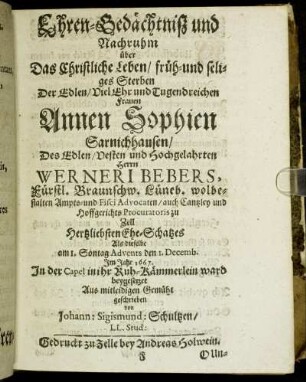 Ehren-Gedächtniß und
Nachruhm
über
Das Christliche Leben/ früh- und seli-
ges Sterben
Der Edlen/ Viel Ehr und Tugendreichen
Frauen
Annen Sophien
Sarnichhausen/
Des Edlen/ Vesten und Hochgelahrten
Herrn
WERNERI BEBERS,
Fürstl. Braunschw. Lüneb. wolbe-
stalten Ampts- und Fisci Advocaten/ auch Cantzley und
Hoffgerichts Procuratoris zu
Zell
Hertzliebsten Ehe-Schatzes
Als dieselbe
am 1. Sontag Advents den 1. Decemb.
Im Jahr 1667.
In der Capel in ihr Ruh-Kämmerlein ward
beygesetzet
Aus mitleidigen Gemüht
geschrieben
von
Johann: Sigismund: Schultzen/
LL. Stud:
Gedruckt zu Zelle bey Andreas Holwein.